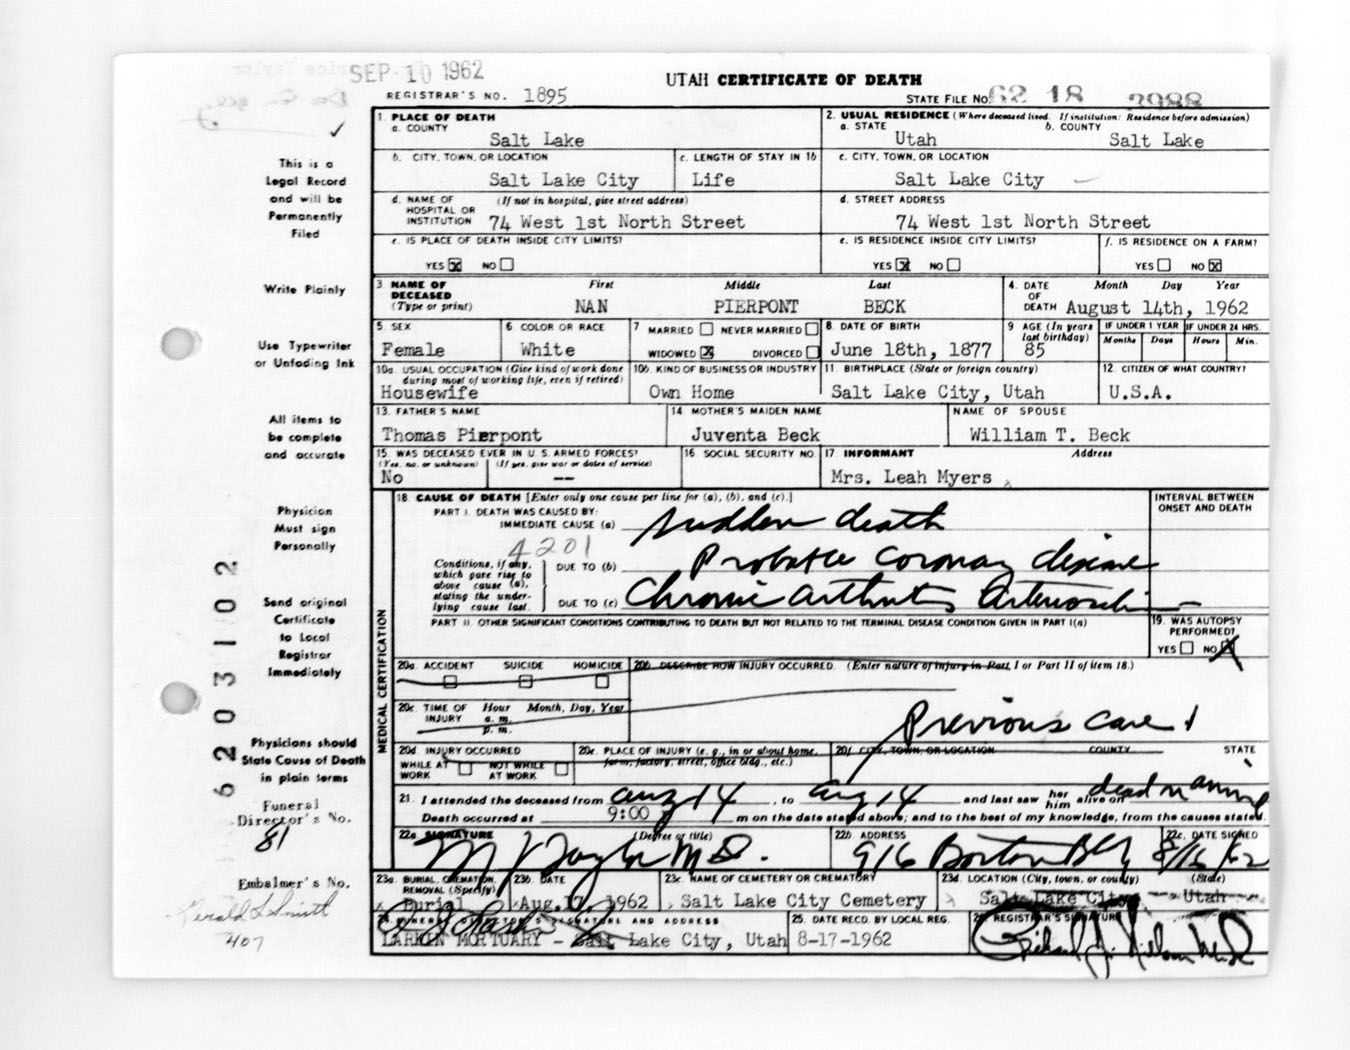 SEP 10 1962
UTAH CERTIFICATE OF DEATH
REGISTRAR'S NO. 1895
STATE FILE NO. 62 18 3988
This is a
Legal Record
and will be
Permanently
Filed
Write Plainly
Use Typewriter
or Unfading Ink
All items to
be complete
and accurate
Physician
Must sign
Personally
Send original
Certificate
to Local
Registrar
Immediately
Physicians should
State Cause of Death
in plain terms
Funeral
Director's No.
81
Embalmer's No.
Gerald L Smith
407
6203102
1. PLACE OF DEATH
a. COUNTY
Salt Lake
2. USUAL RESIDENCE (Where deceased lived. If institution: Residence before admission)
a. STATE b. COUNTY
Utah Salt Lake
b. CITY, TOWN, OR LOCATION
Salt Lake City
c. LENGTH OF STAY IN 1b
Life
c. CITY, TOWN, OR LOCATION
Salt Lake City
d. NAME OF HOSPITAL OR INSTITUTION (If not in hospital, give street address)
74 West 1st North Street
d. STREET ADDRESS
74 West 1st North Street
e. IS PLACE OF DEATH INSIDE CITY LIMITS?
YES X NO
e. IS RESIDENCE INSIDE CITY LIMITS?
YES X NO
f. IS RESIDENCE ON A FARM?
YES NO X
3 NAME OF DECEASED (Type or print)
First Middle Last
NAN PIERPONT BECK
4. DATE OF DEATH
Month Day Year
August 14th, 1962
5. SEX
Female
6 COLOR OR RACE
White
7 MARRIED NEVER MARRIED
WIDOWED X DIVORCED
8. DATE OF BIRTH
June 18th, 1877
9 AGE (In years last birthday)
85
IF UNDER 1 YEAR
Months Days
IF UNDER 24 HRS.
Hours Min.
10a. USUAL OCCUPATION (Give kind of work done during most of working life, even if retired)
Housewife
10b. KIND OF BUSINESS OR INDUSTRY
Own Home
11. BIRTHPLACE (State or foreign country)
Salt Lake City, Utah
12. CITIZEN OF WHAT COUNTRY?
U.S.A.
13. FATHER'S NAME
Thomas Pierpont
14 MOTHER'S MAIDEN NAME
Juventa Beck
NAME OF SPOUSE
William T. Beck
15. WAS DECEASED EVER IN U.S. ARMED FORCES?
(Yes, no, or unknown) (If yes, give war or dates of service)
No --
16. SOCIAL SECURITY NO.
17. INFORMANT Address
Mrs. Leah Myers
MEDICAL CERTIFICATION
18. CAUSE OF DEATH [Enter only one cause per line for (a), (b), and (c).]
INTERVAL BETWEEN ONSET AND DEATH
PART I. DEATH WAS CAUSED BY:
IMMEDIATE CAUSE (a) sudden death
4201
Conditions, if any, which gave rise to above cause (a), stating the underlying cause last.
DUE TO (b) Probable coronary disease
DUE TO (c) Chronic arthritis
PART II. OTHER SIGNIFICANT CONDITIONS CONTRIBUTING TO DEATH BUT NOT RELATED TO THE TERMINAL DISEASE CONDITION GIVEN IN PART I(a)
19. WAS AUTOPSY PERFORMED?
YES NO X
20a. ACCIDENT SUICIDE HOMICIDE
20b. DESCRIBE HOW INJURY OCCURRED. (Enter nature of injury in Part I or Part II of item 18.)
20c. TIME OF INJURY Hour Month, Day, Year
a. m.
p. m.
Previous care
20d INJURY OCCURRED
WHILE AT WORK NOT WHILE AT WORK
20e. PLACE OF INJURY (e. g., in or about home, farm, factory, street, office bldg., etc.)
20f. CITY, TOWN, OR LOCATION COUNTY STATE
21. I attended the deceased from Aug 14, to Aug 14 and last saw her him alive on
Death occurred at 9:00 m on the date stated above; and to the best of my knowledge, from the causes stated.
22a. SIGNATURE (Degree or title)
M.D.
22b ADDRESS
916 Boston Bldg
22c. DATE SIGNED
8/16/62
23a. BURIAL, CREMATION, REMOVAL (Specify)
Burial
23b. DATE
Aug. 17, 1962
23c. NAME OF CEMETERY OR CREMATORY
Salt Lake City Cemetery
23d. LOCATION (City, town, or county) (State)
Salt Lake City -- Utah
24. FUNERAL DIRECTOR'S SIGNATURE AND ADDRESS
LARKIN MORTUARY - Salt Lake City, Utah
25. DATE RECD. BY LOCAL REG.
8-17-1962
26. REGISTRAR'S SIGNATURE